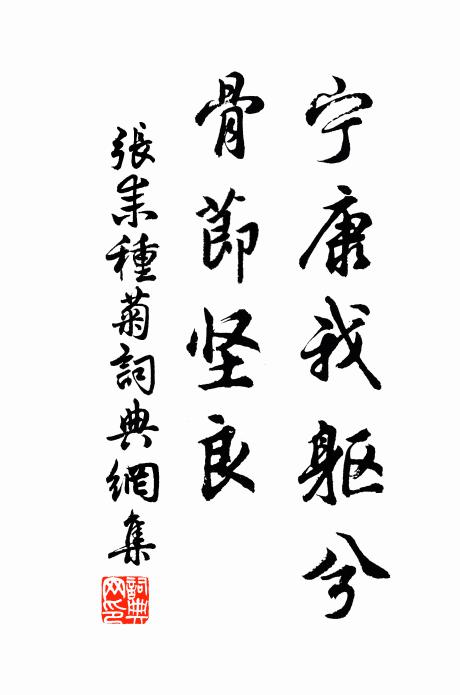 宁康我躯兮
骨節坚良
張耒種菊詞典網集
詞典网印